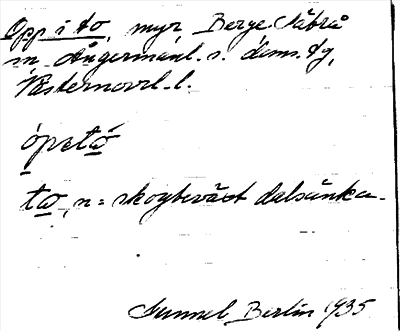 Opp i to, myr, Berge Näbrå
sn, Ångermanl. s. doms. tg,
Västernorrl. l.
ópetå
tå, n = skogbeväxt dalsänka.
Gunnel Berlin 1935